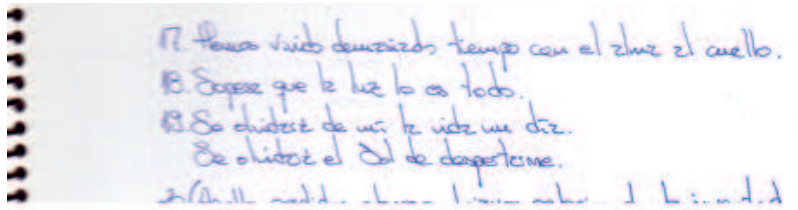 17. Hemos vivido demasiado tiempo con el alma al cuello.
18. que la luz lo es todo.
19. Se olvidará de mí la vida un día.
Se olvidará el Sol de despertarme.